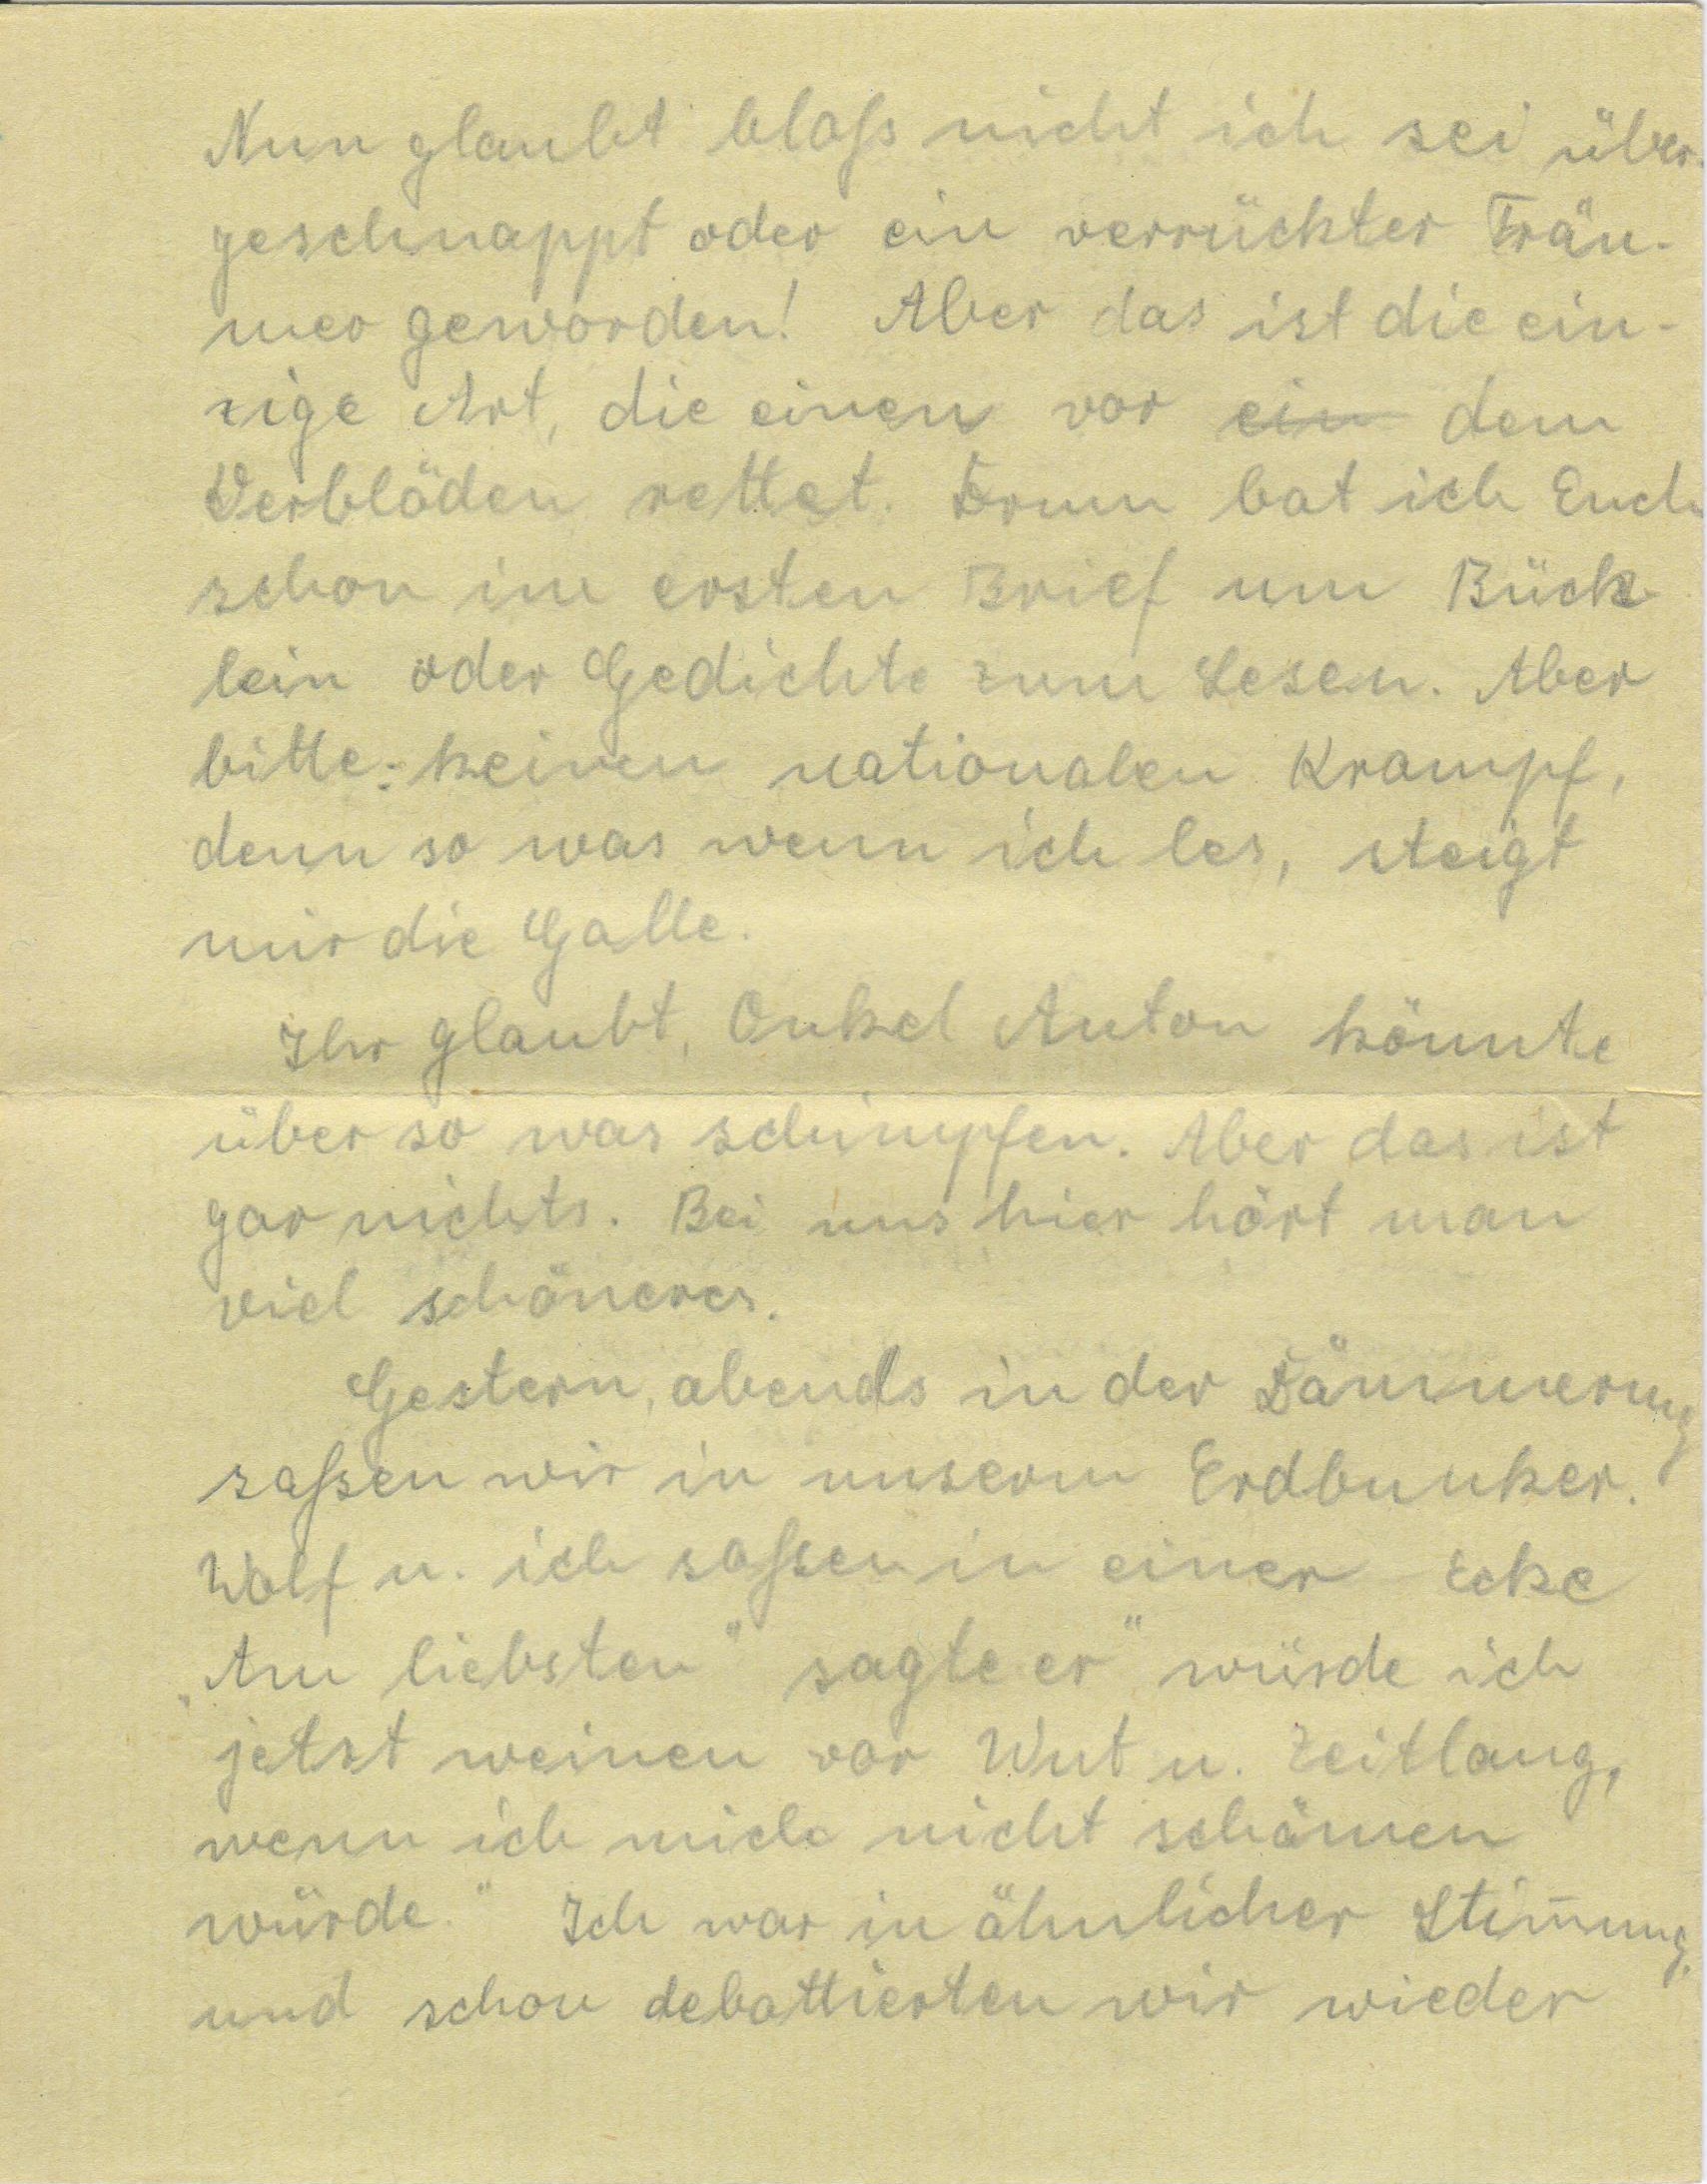 Nun glaubt bloß nicht ich sei über-
geschnappt oder ein verrückter Träu-
mer geworden! Aber das ist die ein-
zige Art, die einen vor ein dem
Verblöden rettet. Drum bat ich Euch
schon im ersten Brief um Büch-
lein oder Gedichte zum Lesen. Aber
bitte: keinen nationalen Krampf,
denn so was wenn ich les, steigt
mir die Galle.
Ihr glaubt, Onkel Anton könnte
über so was schimpfen. Aber das ist
gar nichts. Bei uns hier hört man
viel schöneres.
Gestern, abends in der Dämmerung
saßen wir in unserm Erdbunker.
Wolf u. ich saßen in einer Ecke
„Am liebsten" sagte er" würde ich
jetzt weinen vor Wut u. Zeitlang,
wenn ich mich nicht schämen
würde." Ich war in ähnlicher Stim̄ung,
und schon debattierten wir wieder